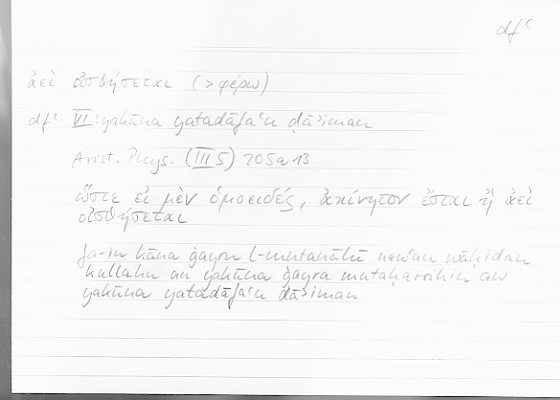 dfʿ
ἀεὶ οἰσθήσεται (> φέρω)
dfʿ VI: yakūna yatadāfaʿu dāʾiman
Arist. Phys. (III 5) 205a13
ὥστε εἰ μὲν ὁμοειδές, ἀκίνητον ἔσται ἢ ἀεὶ
οἰσθήσεται
fa-in kāna ġayru l-mutanāhī nawʿan wāḥidan
kulluhū an yakūna ġayra mutaḥarrikin aw
yakūna yatadāfaʿu dāʾiman